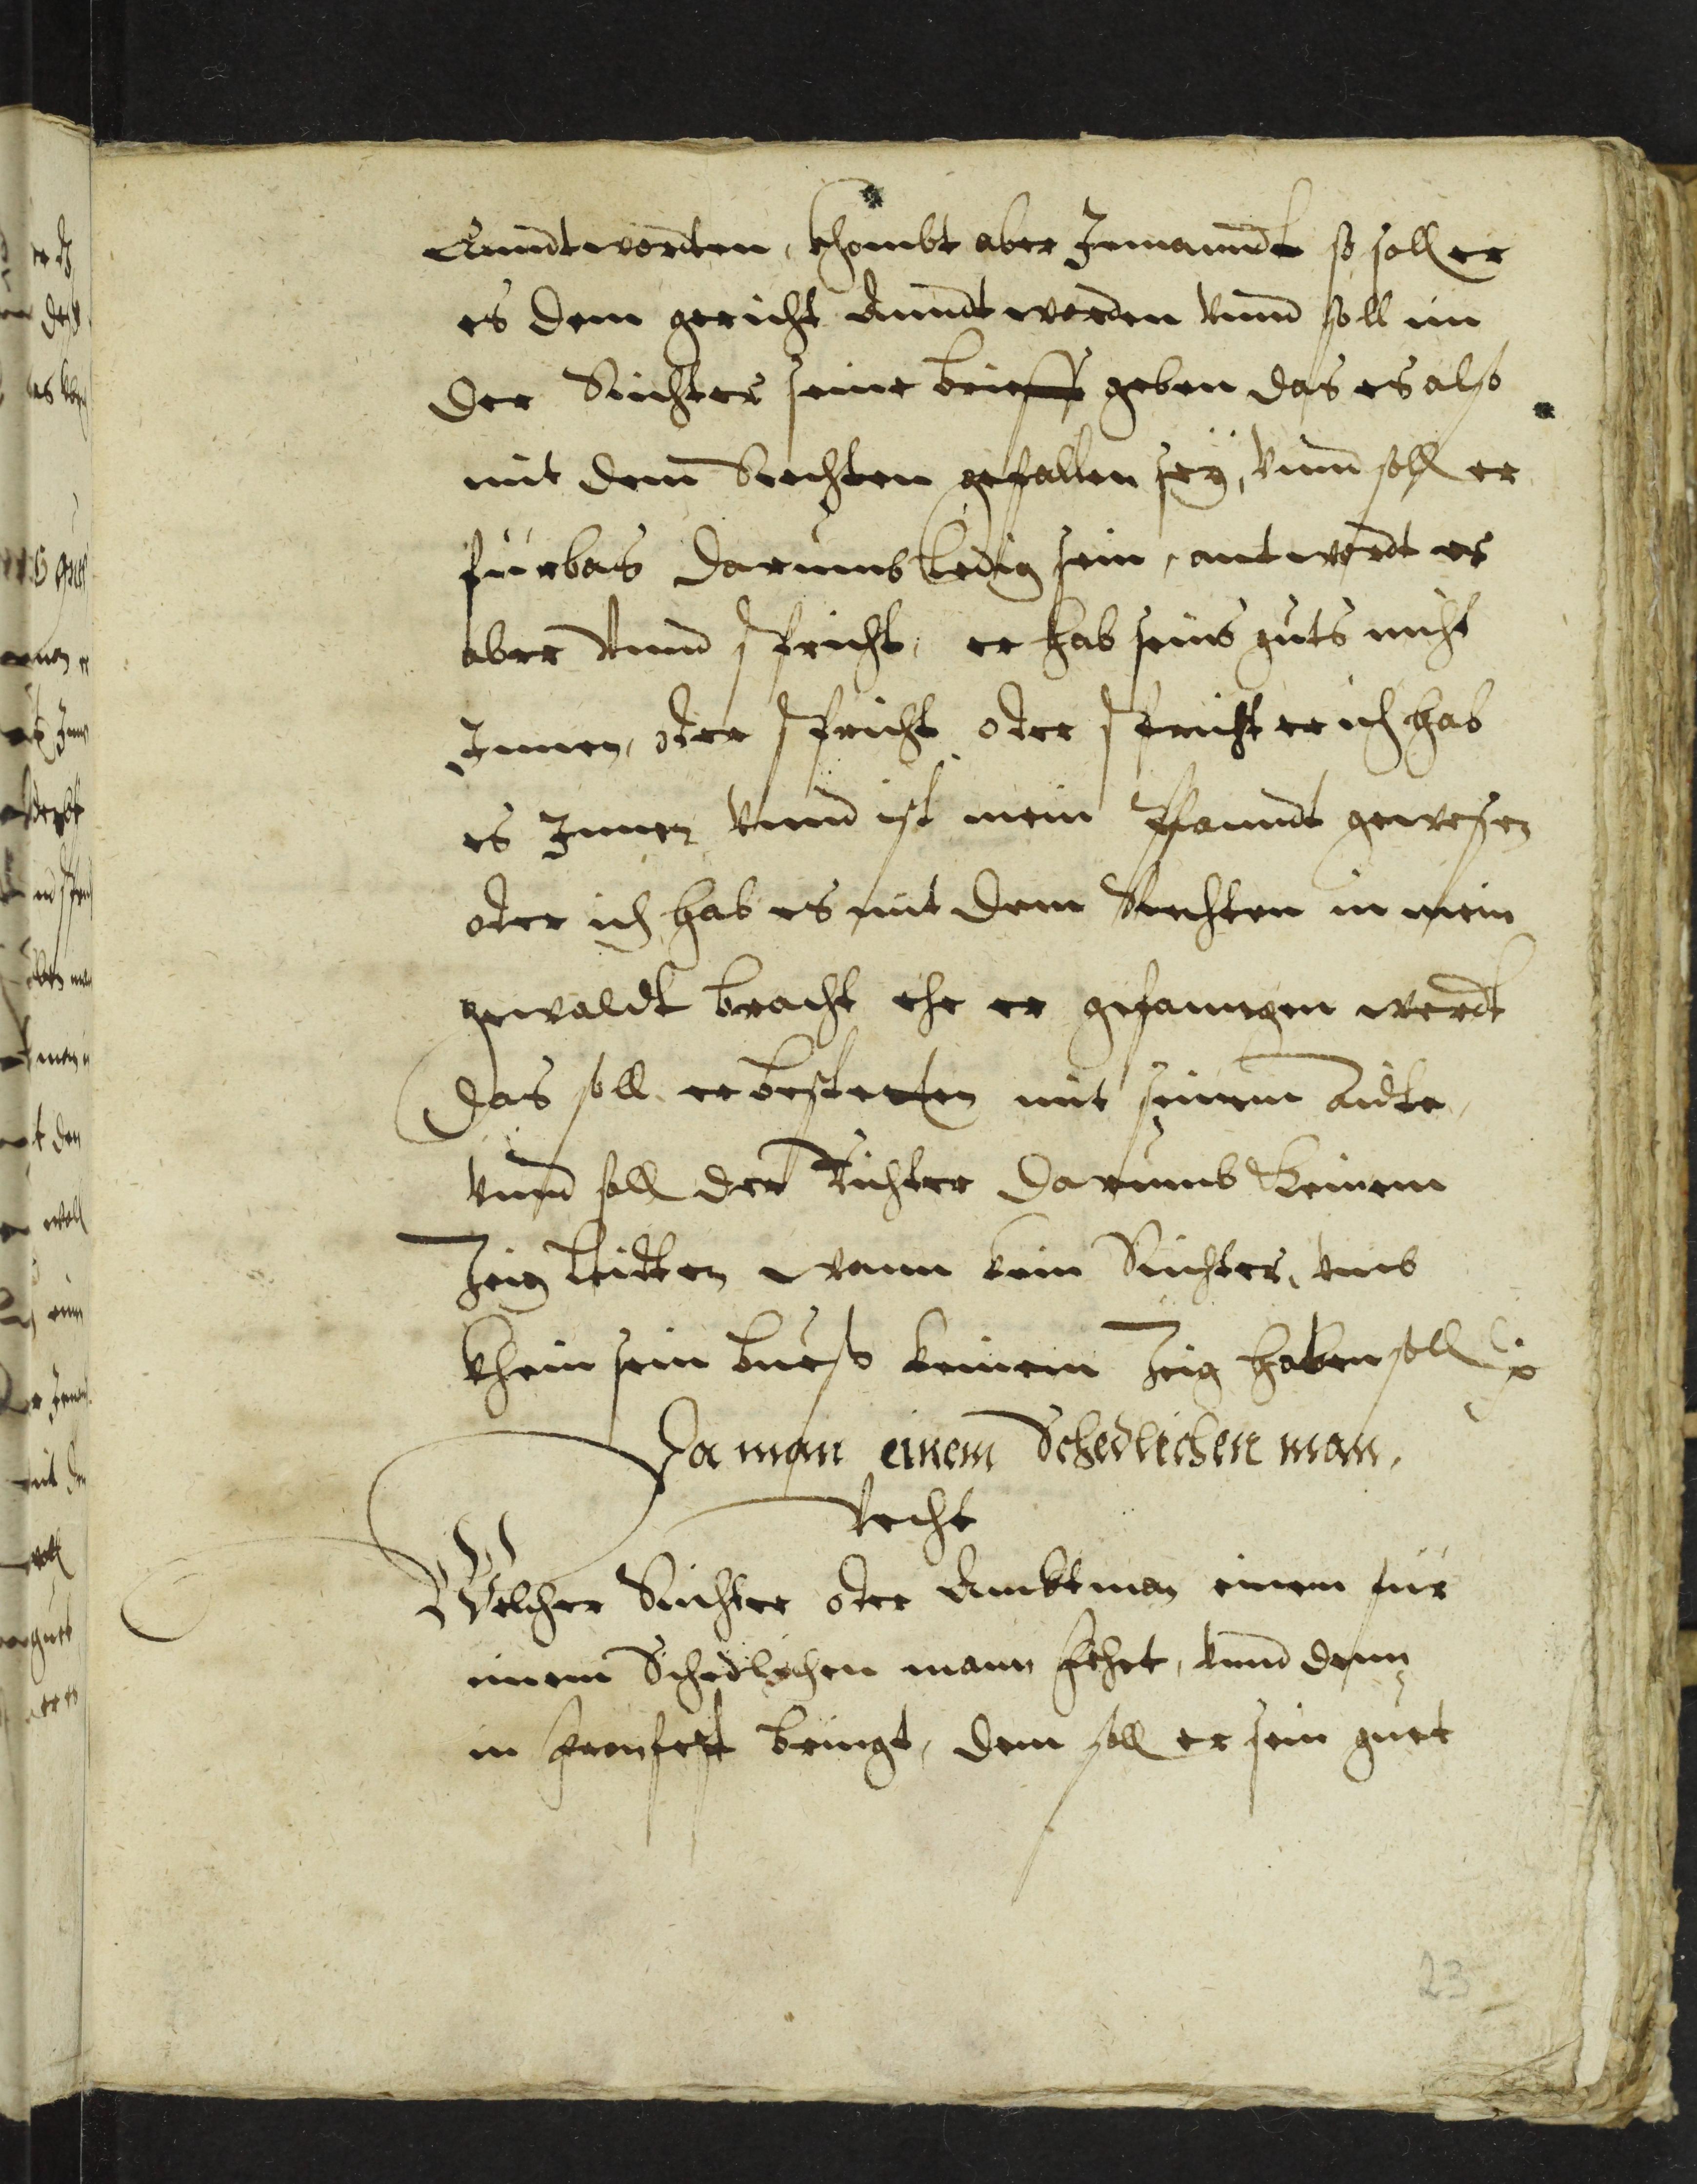 Anndtworden, khombt aber Jemanndt so soll er
es dem gericht Anndtworden vnnd soll im
der Richter seine brieff geben das es also
mit dem Rechten gefallen seÿ, vnnd soll er
fürbas darumb ledig sein, antwordt er
aber vnnd spricht, er hab seins guts nicht
Innen, oder spricht oder spricht er ich hab
es Innen vnnd ist mein pfanndt gewesen
oder ich hab es mit dem Rechten in mein
gewaldt bracht ehe er gefanngen werdt
das soll er bestetten mit seinem aidte,
vnnd soll der Richter darumb keinem
Zeig leitten wann kein Richter, vmb
khein sein bueß keinem Zeig haben soll
Da man einem Schedlichen man,
Recht
Welcher Richter oder Ambtman einem für
einem Schedlichen mann fehet, vnnd denn
in fronfest bringt, dem soll er sein guet
23